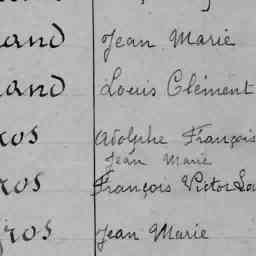 and Jean Marie
and Louis Clément
ros Adolphe François
Jean Marie
ros François Victor Lou
gros Jean Marie